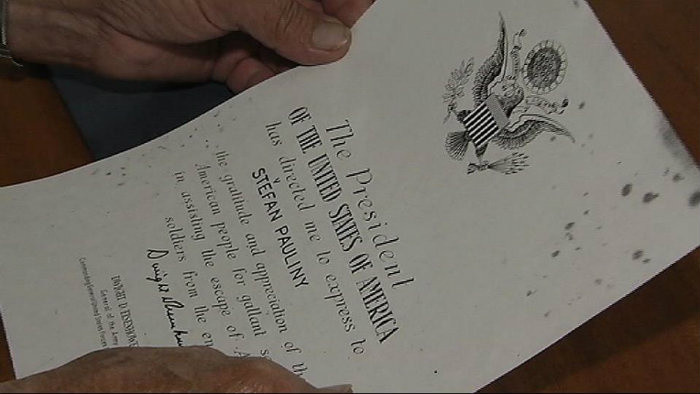 The President
OF THE UNITED STATES OF AMERICA
has directed me to express to
STEFAN PAULINY
the gratitude and appreciation of the
American people for gallant s
in assisting the escape of A
soldiers from the en
DWIGHT D. EISENHOWE
General of the Army
Commanding General United States Forces